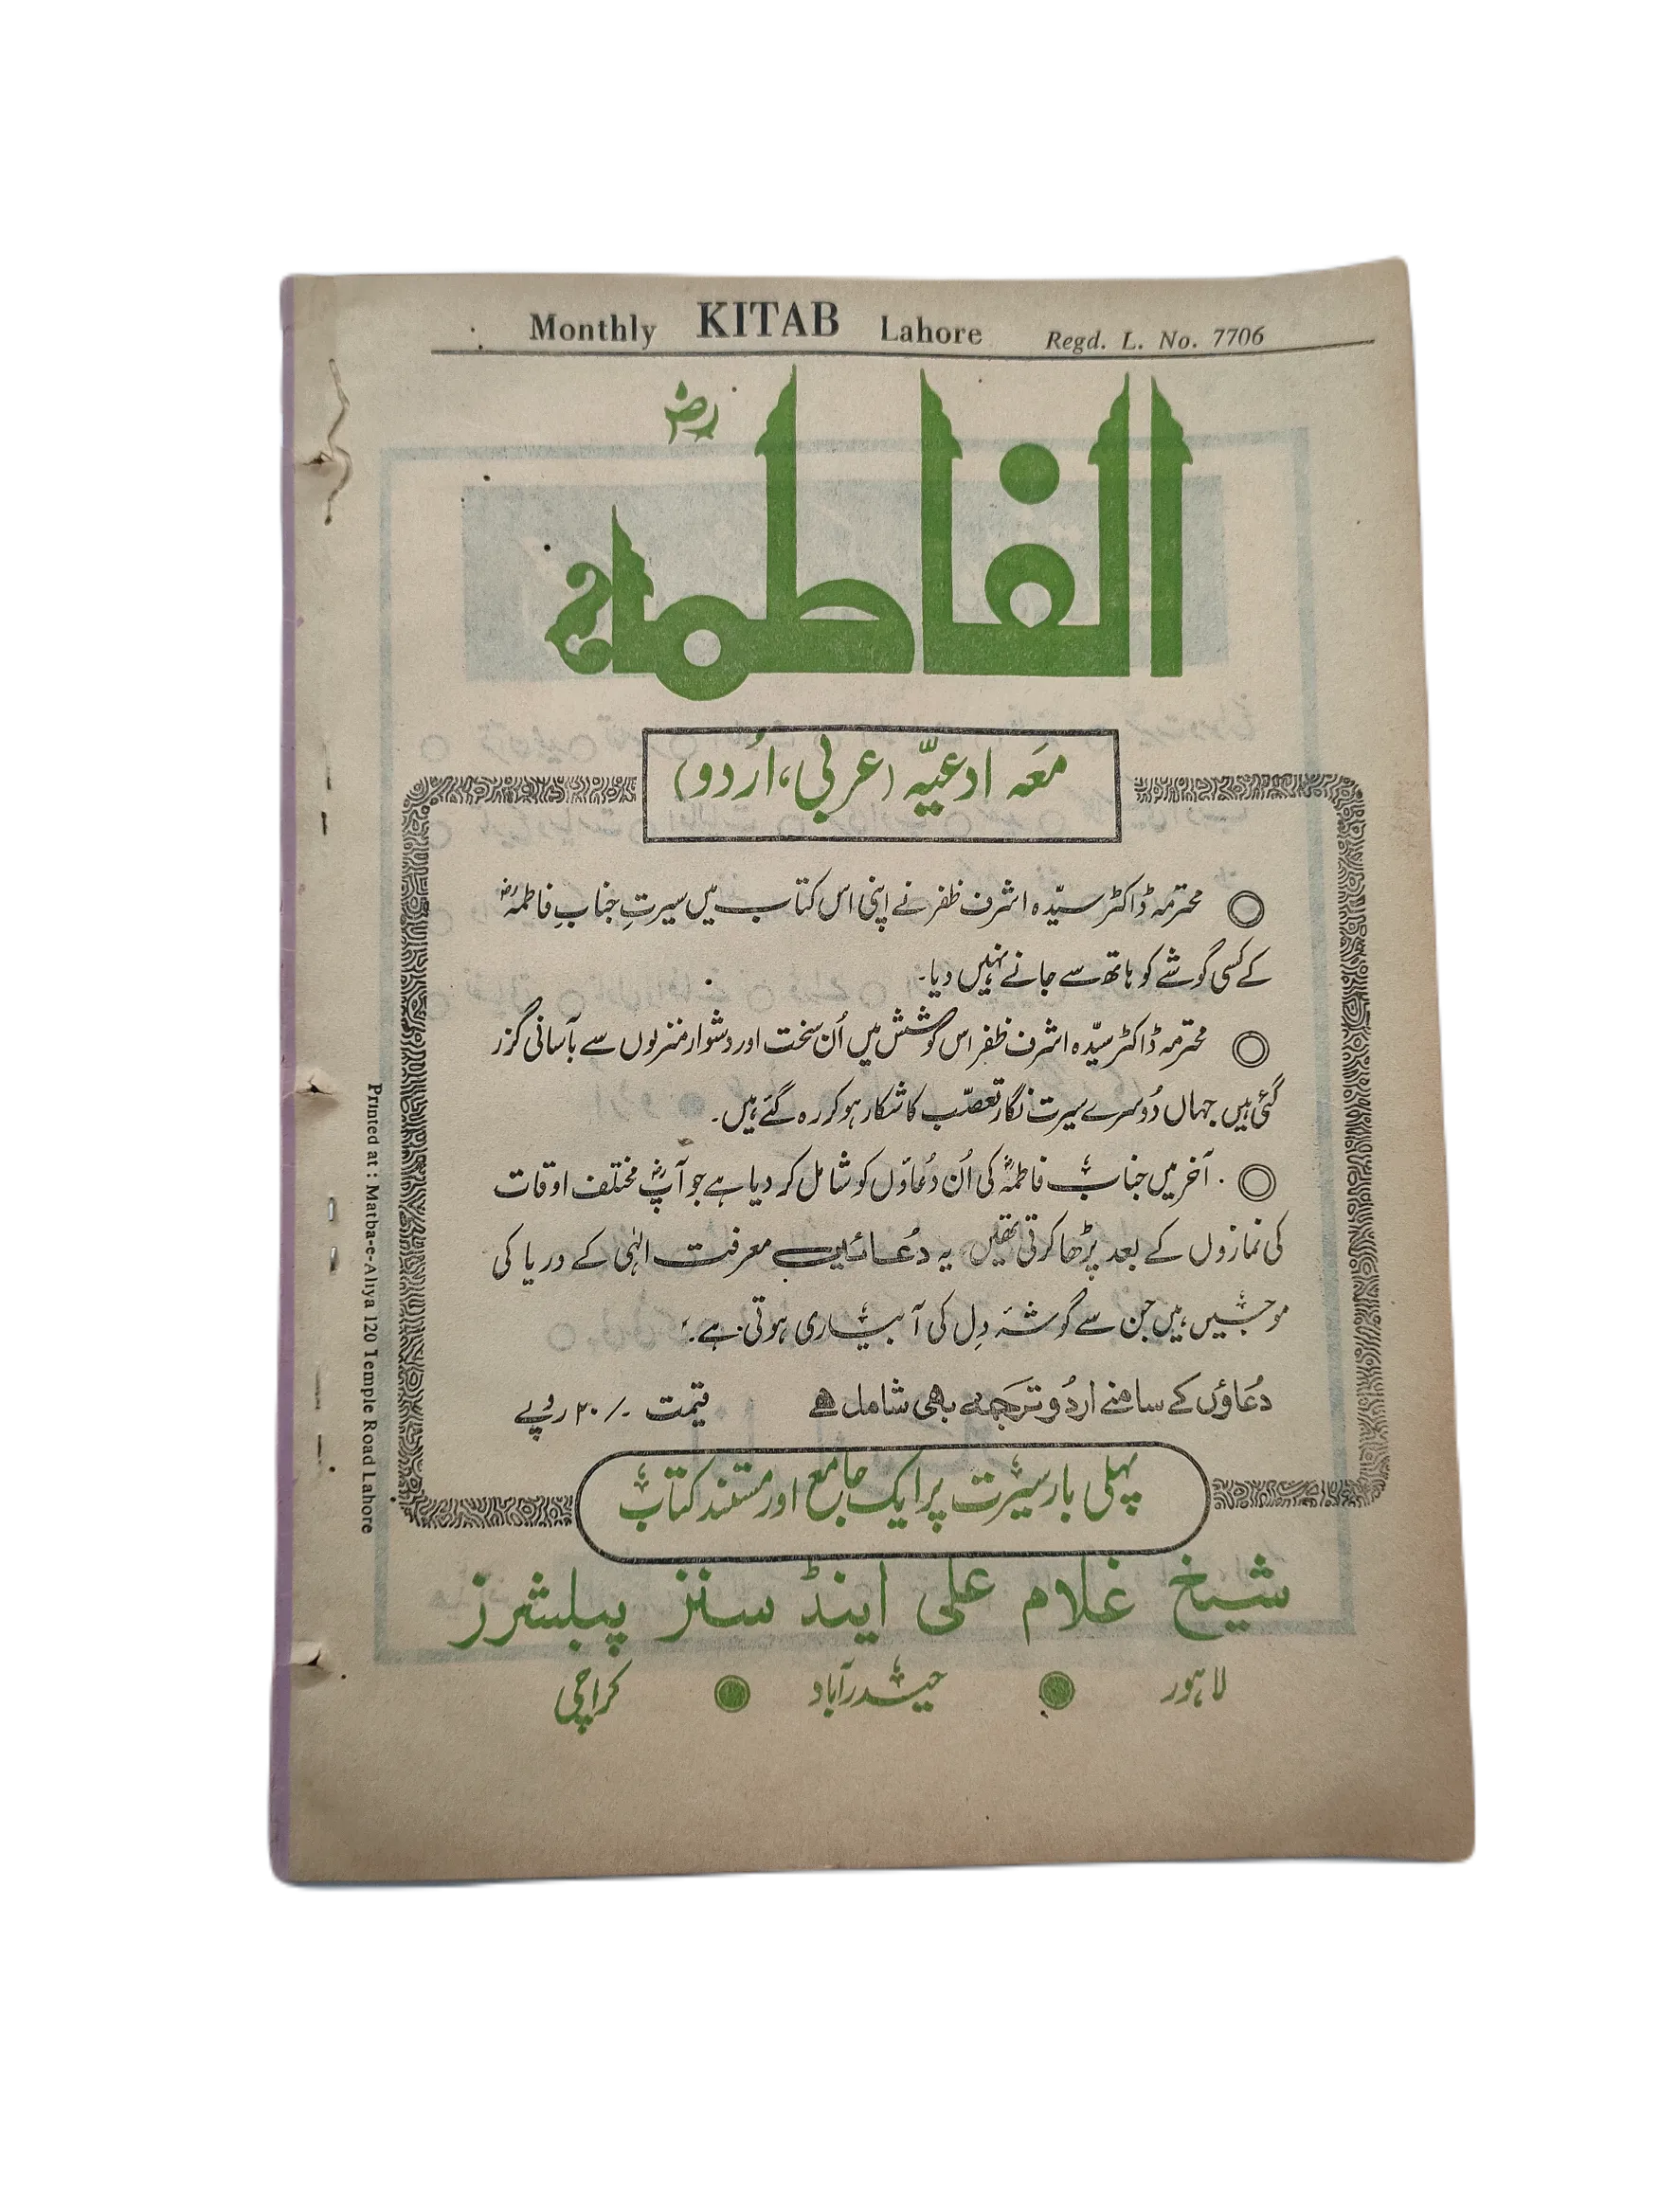 Monthly KITAB Lahore Regd. L. No. 7706
الفاطمہؓ
معَہ ادعیّہ (عربی، اُردو)
محترمہ ڈاکٹر سیّدہ اشرف ظفر نے اپنی اس کتاب میں سیرتِ جنابِ فاطمہؓ
کے کسی گوشے کو ہاتھ سے جانے نہیں دیا۔
محترمہ ڈاکٹر سیّدہ اشرف ظفر اس کوشش میں اُن سخت اور دشوار منزلوں سے بآسانی گزر
گئی ہیں جہاں دُوسرے سیرت نگار تعصّب کا شکار ہو کر رہ گئے ہیں۔
آخر میں جناب فاطمہؓ کی اُن دُعاؤں کو شامل کر دیا ہے جو آپؓ مختلف اوقات
کی نمازوں کے بعد پڑھا کرتی تھیں یہ دُعائیں معرفت الہٰی کے دریا کی
موجیں ہیں جن سے گوشۂ دِل کی آبیاری ہوتی ہے۔
دُعاؤں کے سامنے اردُو ترجمے بھی شامل ہے قیمت ۔/۲۰ روپے
پہلی بار سیرت پر ایک جامع اور مستند کتاب
شیخ غلام علی اینڈ سنز پبلشرز
لاہور ● حیدرآباد ● کراچی
Printed at : Matba-e-Aliya 120 Temple Road Lahore